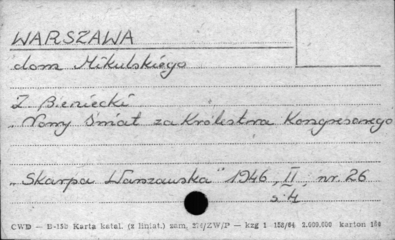 WARSZAWA
dom Mikulskiego
Z. Bieniecki
Nowy Świat za Królestwa Kongresowego
„Skarpa Warszawska" 1946, II, nr. 26
s. 4
CWD — B-150 Karta katal. (x liniat.) zam. /ZW/P — kzg 1-156/64 2.000.000 karton